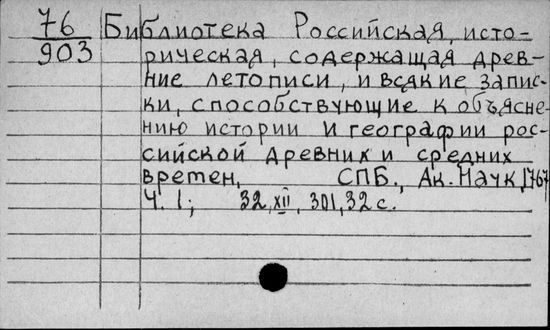 76 Библиотека Российская, исто-
903 рическая, содержащая древ-
ние летописи, и всякие запис-
ки, способствующие к объясне-
нию истории и географии рос-
сийской древних и средних
время, СПБ., Ак. Наук, 1767
Ч. 1; 32, XII, 301, 32 с.